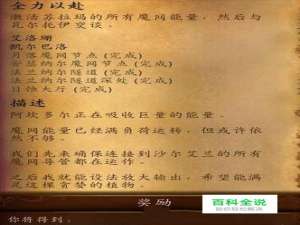 全力以赴
激活苏拉玛的所有魔网能量，然后与
瓦尔托伊空谈。
艾洛珊
凯尔巴洛
月落魔网节点 (完成)
安基纳尔魔网节点 (完成)
法兰纳尔隧道 (完成)
法兰纳尔隧道深处 (完成)
日蚀大厅 (完成)
描述
阿坎多尔正在吸收巨量的能量。
魔网能量已经满负荷运转，但或许依
然不够。
我们先来确保连接到沙尔艾兰的所有
魔网导管都在运作。
之后我就能设法放大输出，希望能满
足这棵贪婪的植物。
奖励
你将得到：
百科全说